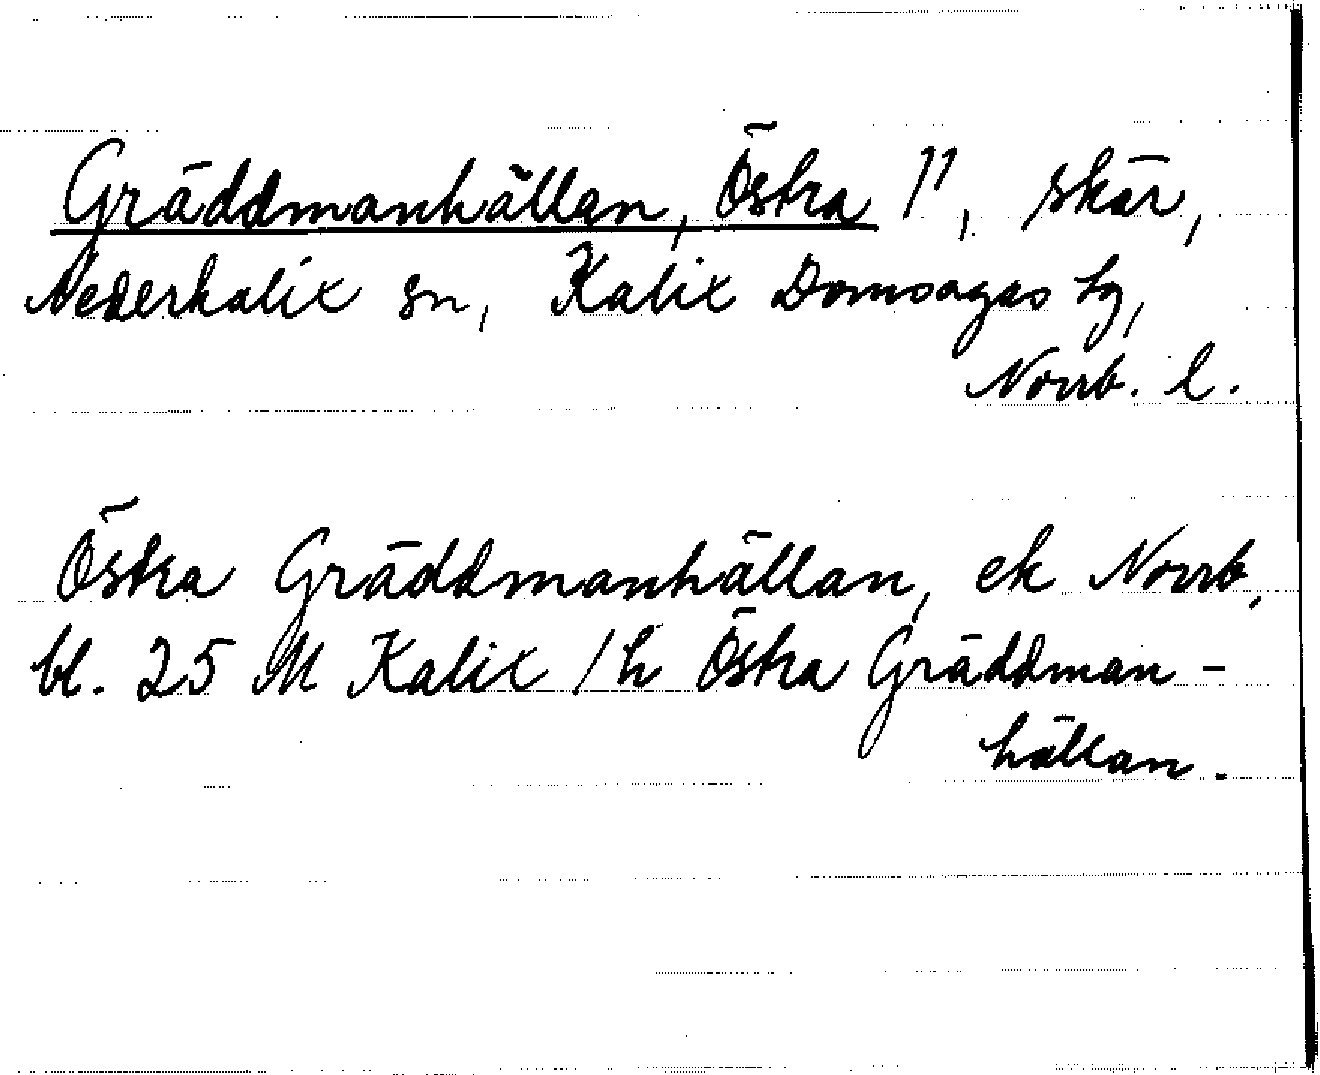 Gräddmanhällan, Östra //, skär,
Nederkalix sn, Kalix Domsagas tg,
Norrb. l.
Östra Gräddmanhällan, ek Norrb,
bl. 25 M Kalix /h Östra Gräddman-
hällan.